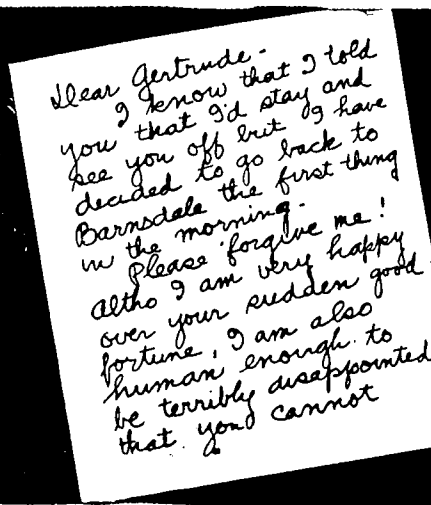 Dear Gertrude -
I know that I told
you that I'd stay and
see you off but I have
decided to go back to
Barnsdale the first thing
in the morning.
Please forgive me!
Altho I am very happy
over your sudden good
fortune, I am also
human enough to
be terribly disappointed
that you cannot